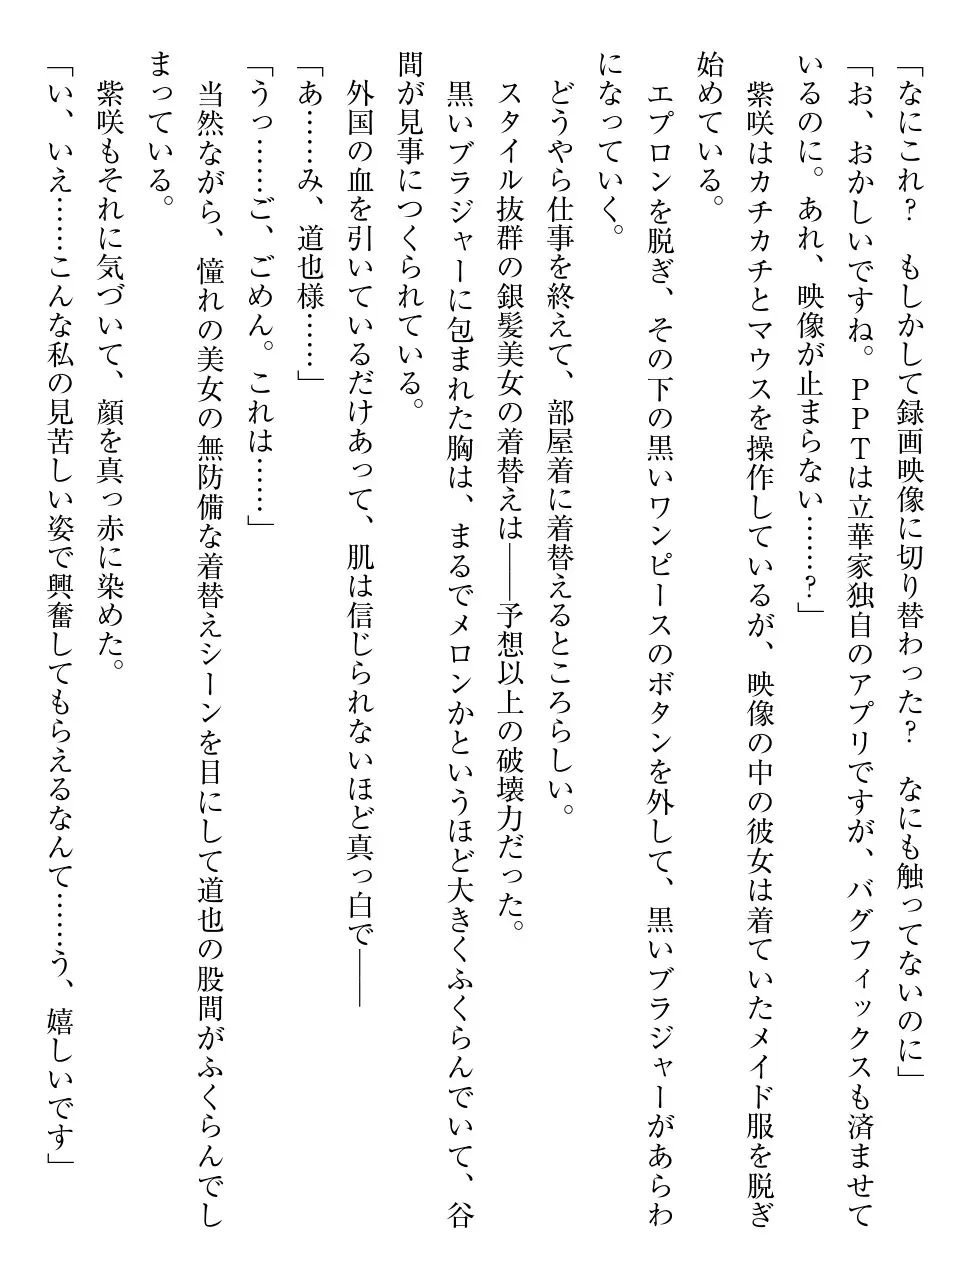 「なにこれ？　もしかして録画映像に切り替わった？　なにも触ってないのに」
「お、おかしいですね。ＰＰＴは立華家独自のアプリですが、バグフィックスも済ませて
いるのに。あれ、映像が止まらない……？」
　紫咲はカチカチとマウスを操作しているが、映像の中の彼女は着ていたメイド服を脱ぎ
始めている。
　エプロンを脱ぎ、その下の黒いワンピースのボタンを外して、黒いブラジャーがあらわ
になっていく。
　どうやら仕事を終えて、部屋着に着替えるところらしい。
　スタイル抜群の銀髪美女の着替えは――予想以上の破壊力だった。
　黒いブラジャーに包まれた胸は、まるでメロンかというほど大きくふくらんでいて、谷
間が見事につくられている。
　外国の血を引いているだけあって、肌は信じられないほど真っ白で――
「あ……み、道也様……」
「うっ……ご、ごめん。これは……」
　当然ながら、憧れの美女の無防備な着替えシーンを目にして道也の股間がふくらんでし
まっている。
　紫咲もそれに気づいて、顔を真っ赤に染めた。
「い、いえ……こんな私の見苦しい姿で興奮してもらえるなんて……う、嬉しいです」